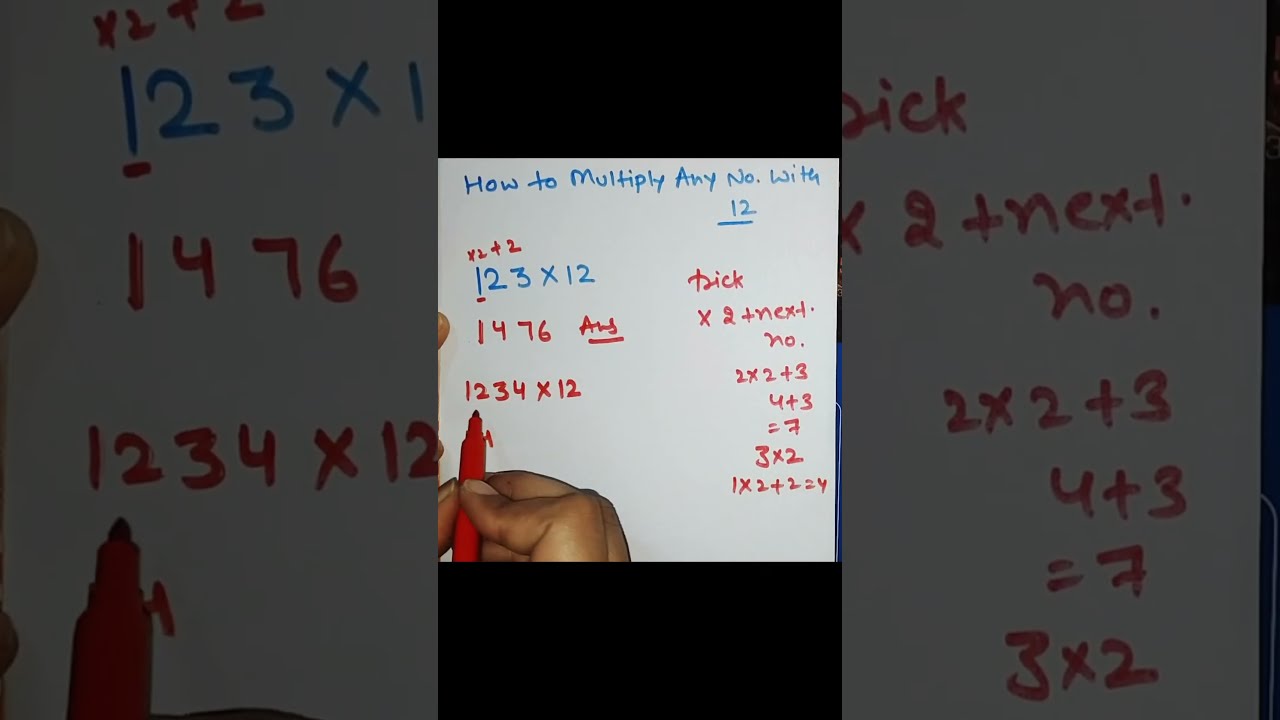 How to Multiply Any No. With
12
x2 + 2
123 × 12
1476 Ans
1234 × 12
4
trick
× 2 + next.
no.
2×2+3
4+3
= 7
3×2
1×2+2=4